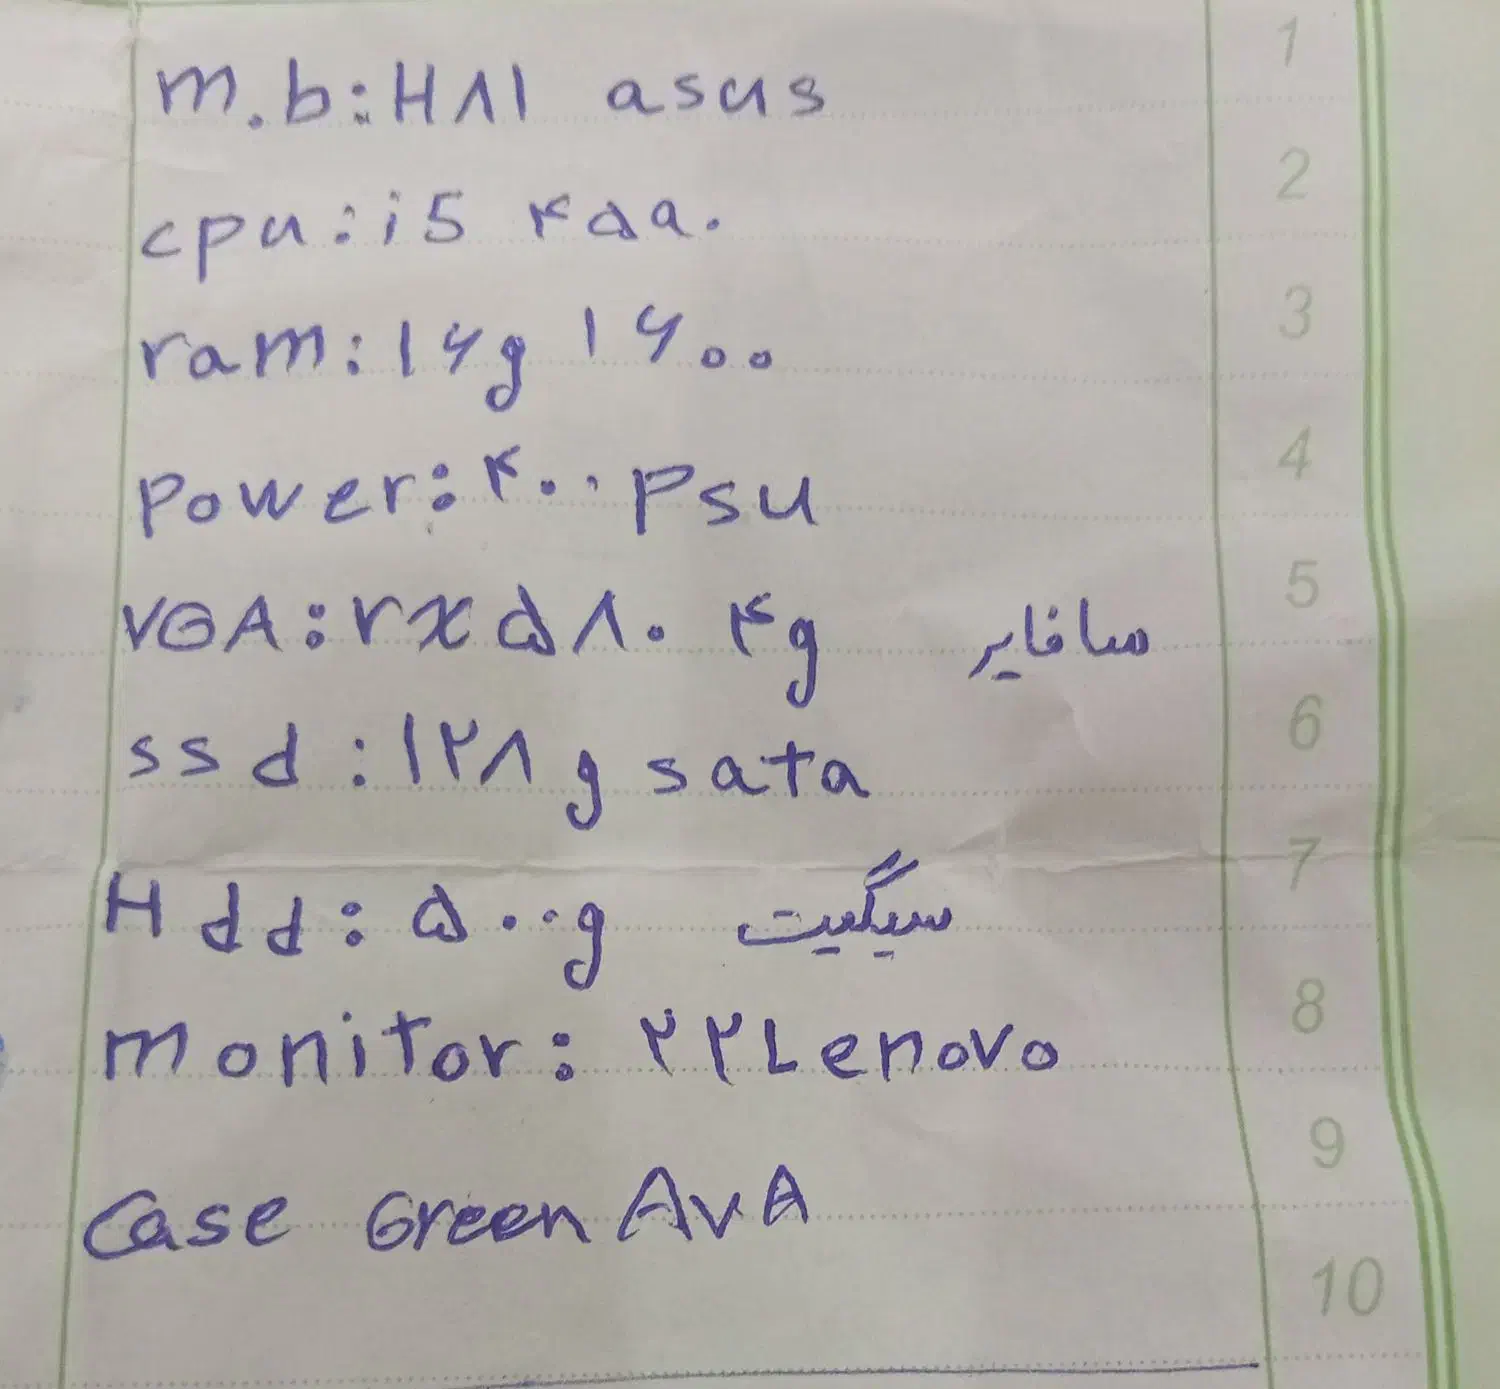 m.b:H۸۱ asus
cpu:i5 ۴۵۹۰
ram:۱۶g ۱۶۰۰
Power:۴۰۰ Psu
VGA:rx ۵۸۰ ۴g سافایر
ssd:۱۲۸g sata
Hdd:۵۰۰g سیگیت
monitor:۲۲Lenovo
Case Green AvA
1
2
3
4
5
6
7
8
9
10